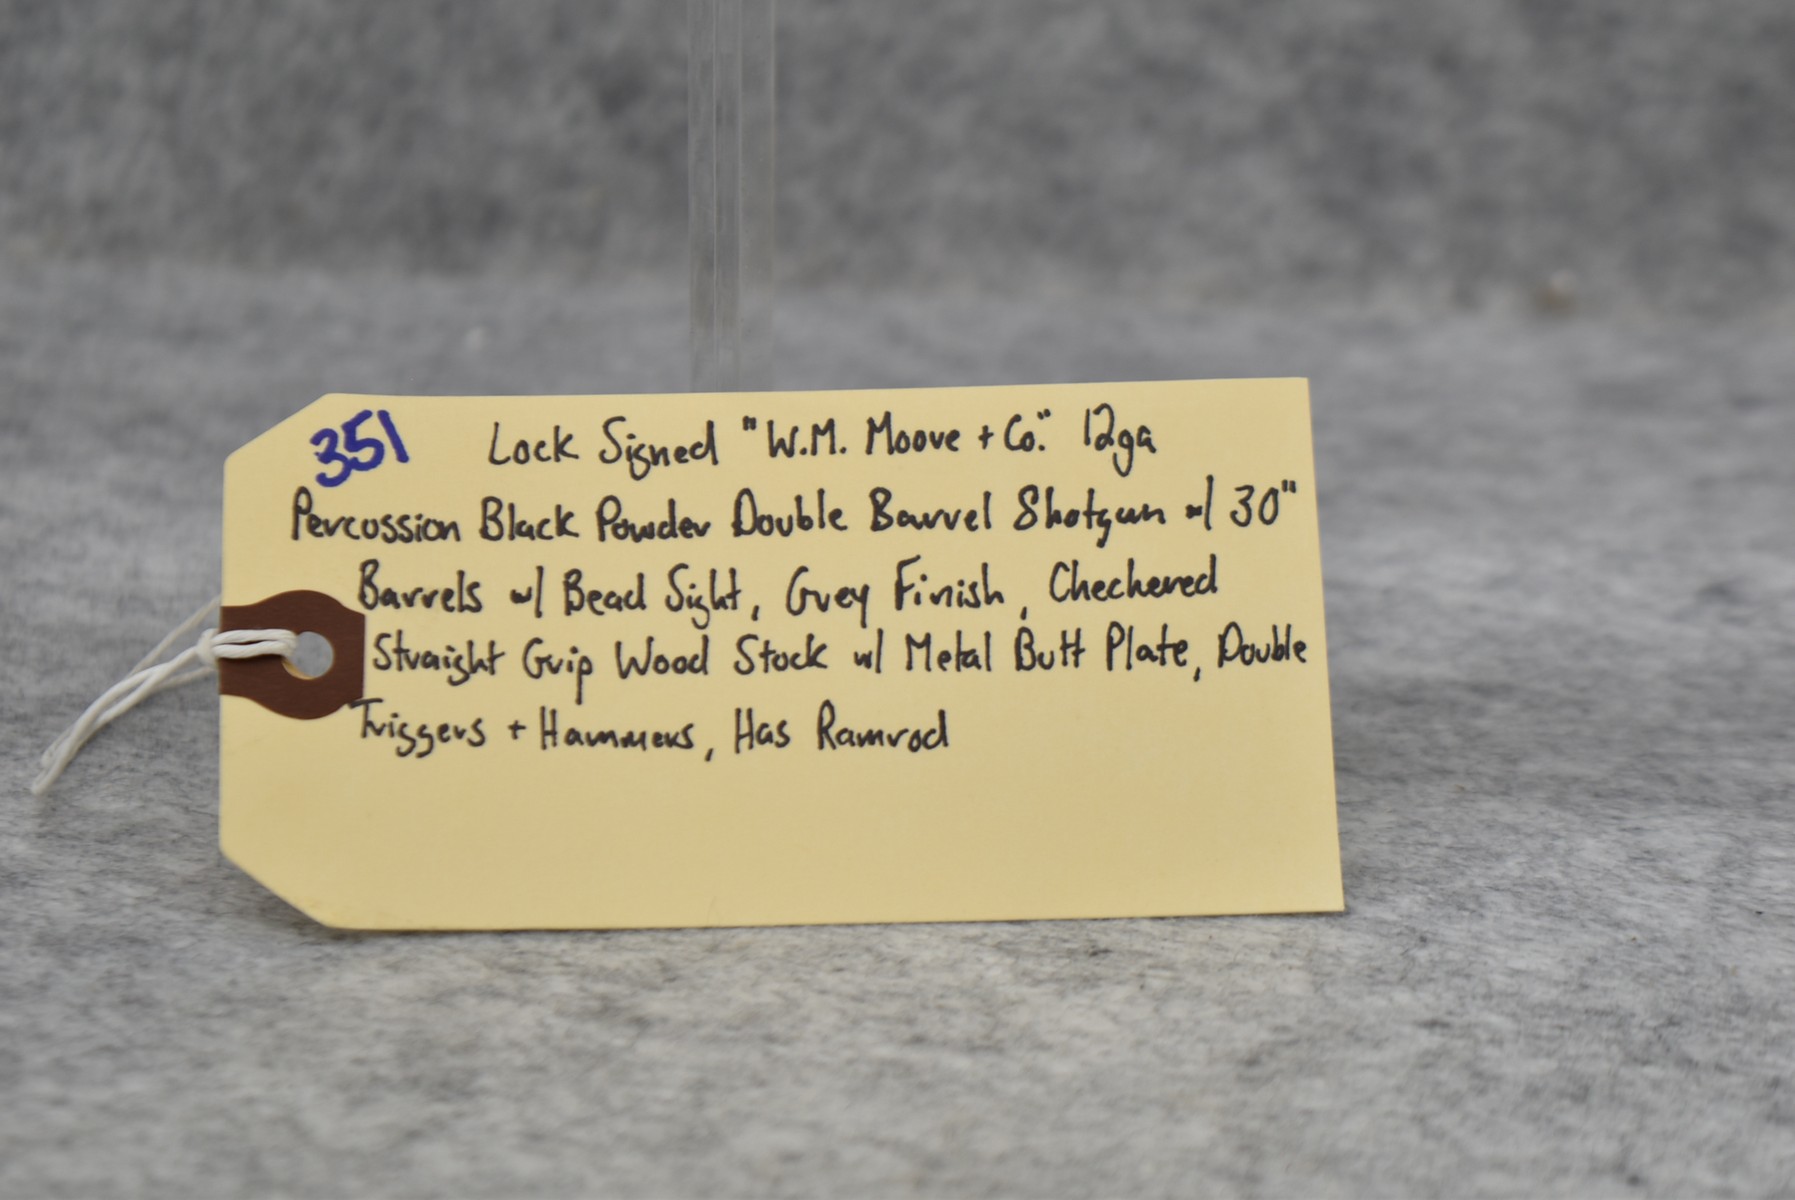 351 Lock Signed "W.M. Moore + Co." 12ga
Percussion Black Powder Double Barrel Shotgun w/ 30"
Barrels w/ Bead Sight, Grey Finish, Checkered
Straight Grip Wood Stock w/ Metal Butt Plate, Double
Triggers + Hammers, Has Ramrod